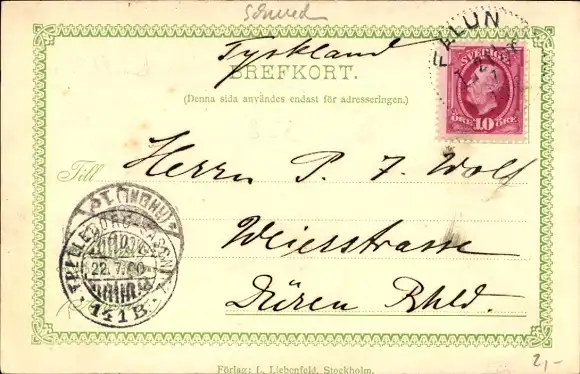 Schwed
Tyskland
FALUN
BREFKORT.
(Denna sida användes endast för adresseringen.)
SVERIGE
ÖRE 10 ÖRE
Till Herrn P. J. Wolf
Weierstrasse
Düren Rhld.
22.7.00
141 B.
2,-
Förlag: L. Liebenfeld, Stockholm.